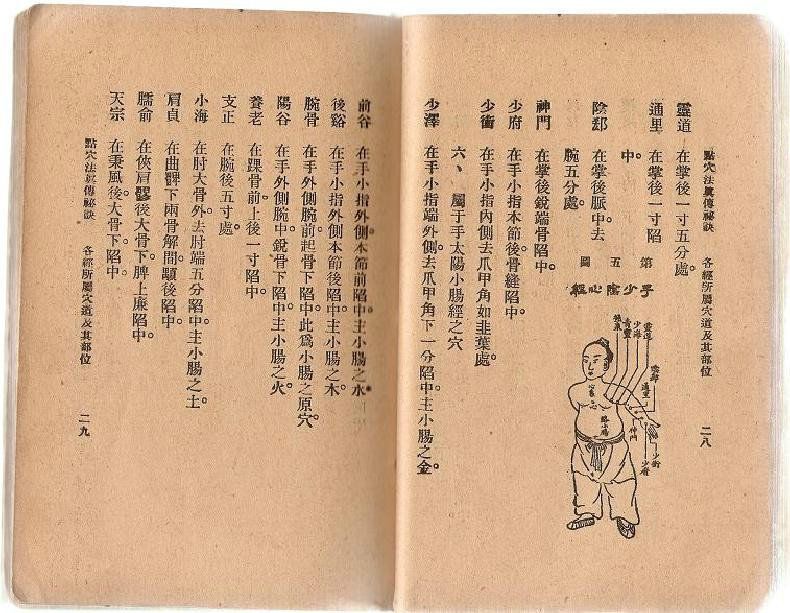 點穴法眞傳祕訣　各經所屬穴道及其部位　二八
靈道　在掌後一寸五分處。
通里　在掌後一寸陷
中。
陰郄　在掌後脈中。去
腕五分處。
神門　在掌後銳端骨陷中。
少府　在手小指本節後。骨縫陷中。
少衝　在手小指內側。去爪甲角如韭葉處。
六、屬于手太陽小腸經之穴
少澤　在手小指端外側。去爪甲角下一分陷中。主小腸之金。
圖五第
經心陰少手
極泉
青靈
少海
靈道
陰郄
通里
神門
少府
少衝
心
絡小腸
前谷　在手小指外側。本節前陷中。主小腸之水。
後谿　在手小指外側。本節後陷中。主小腸之木。
腕骨　在手外側。腕前起骨下陷中。此爲小腸之原穴。
陽谷　在手外側腕中。銳骨下陷中。主小腸之火。
養老　在踝骨前上後一寸陷中。
支正　在腕後五寸處。
小海　在肘大骨外。去肘端五分陷中。主小腸之土。
肩貞　在曲髀下。兩骨解間。顒後陷中。
臑俞　在俠肩髎後大骨下。胛上廉陷中。
天宗　在秉風後大骨下。陷中。
點穴法眞傳祕訣　各經所屬穴道及其部位　二九